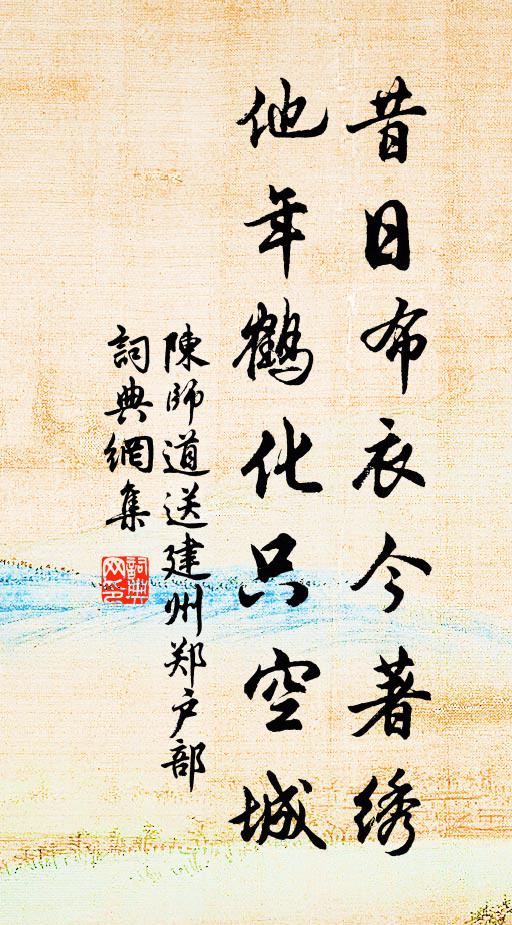 昔日布衣今著绣
他年鹤化只空城
陳師道送建州郑户部
詞典網集
詞典
网